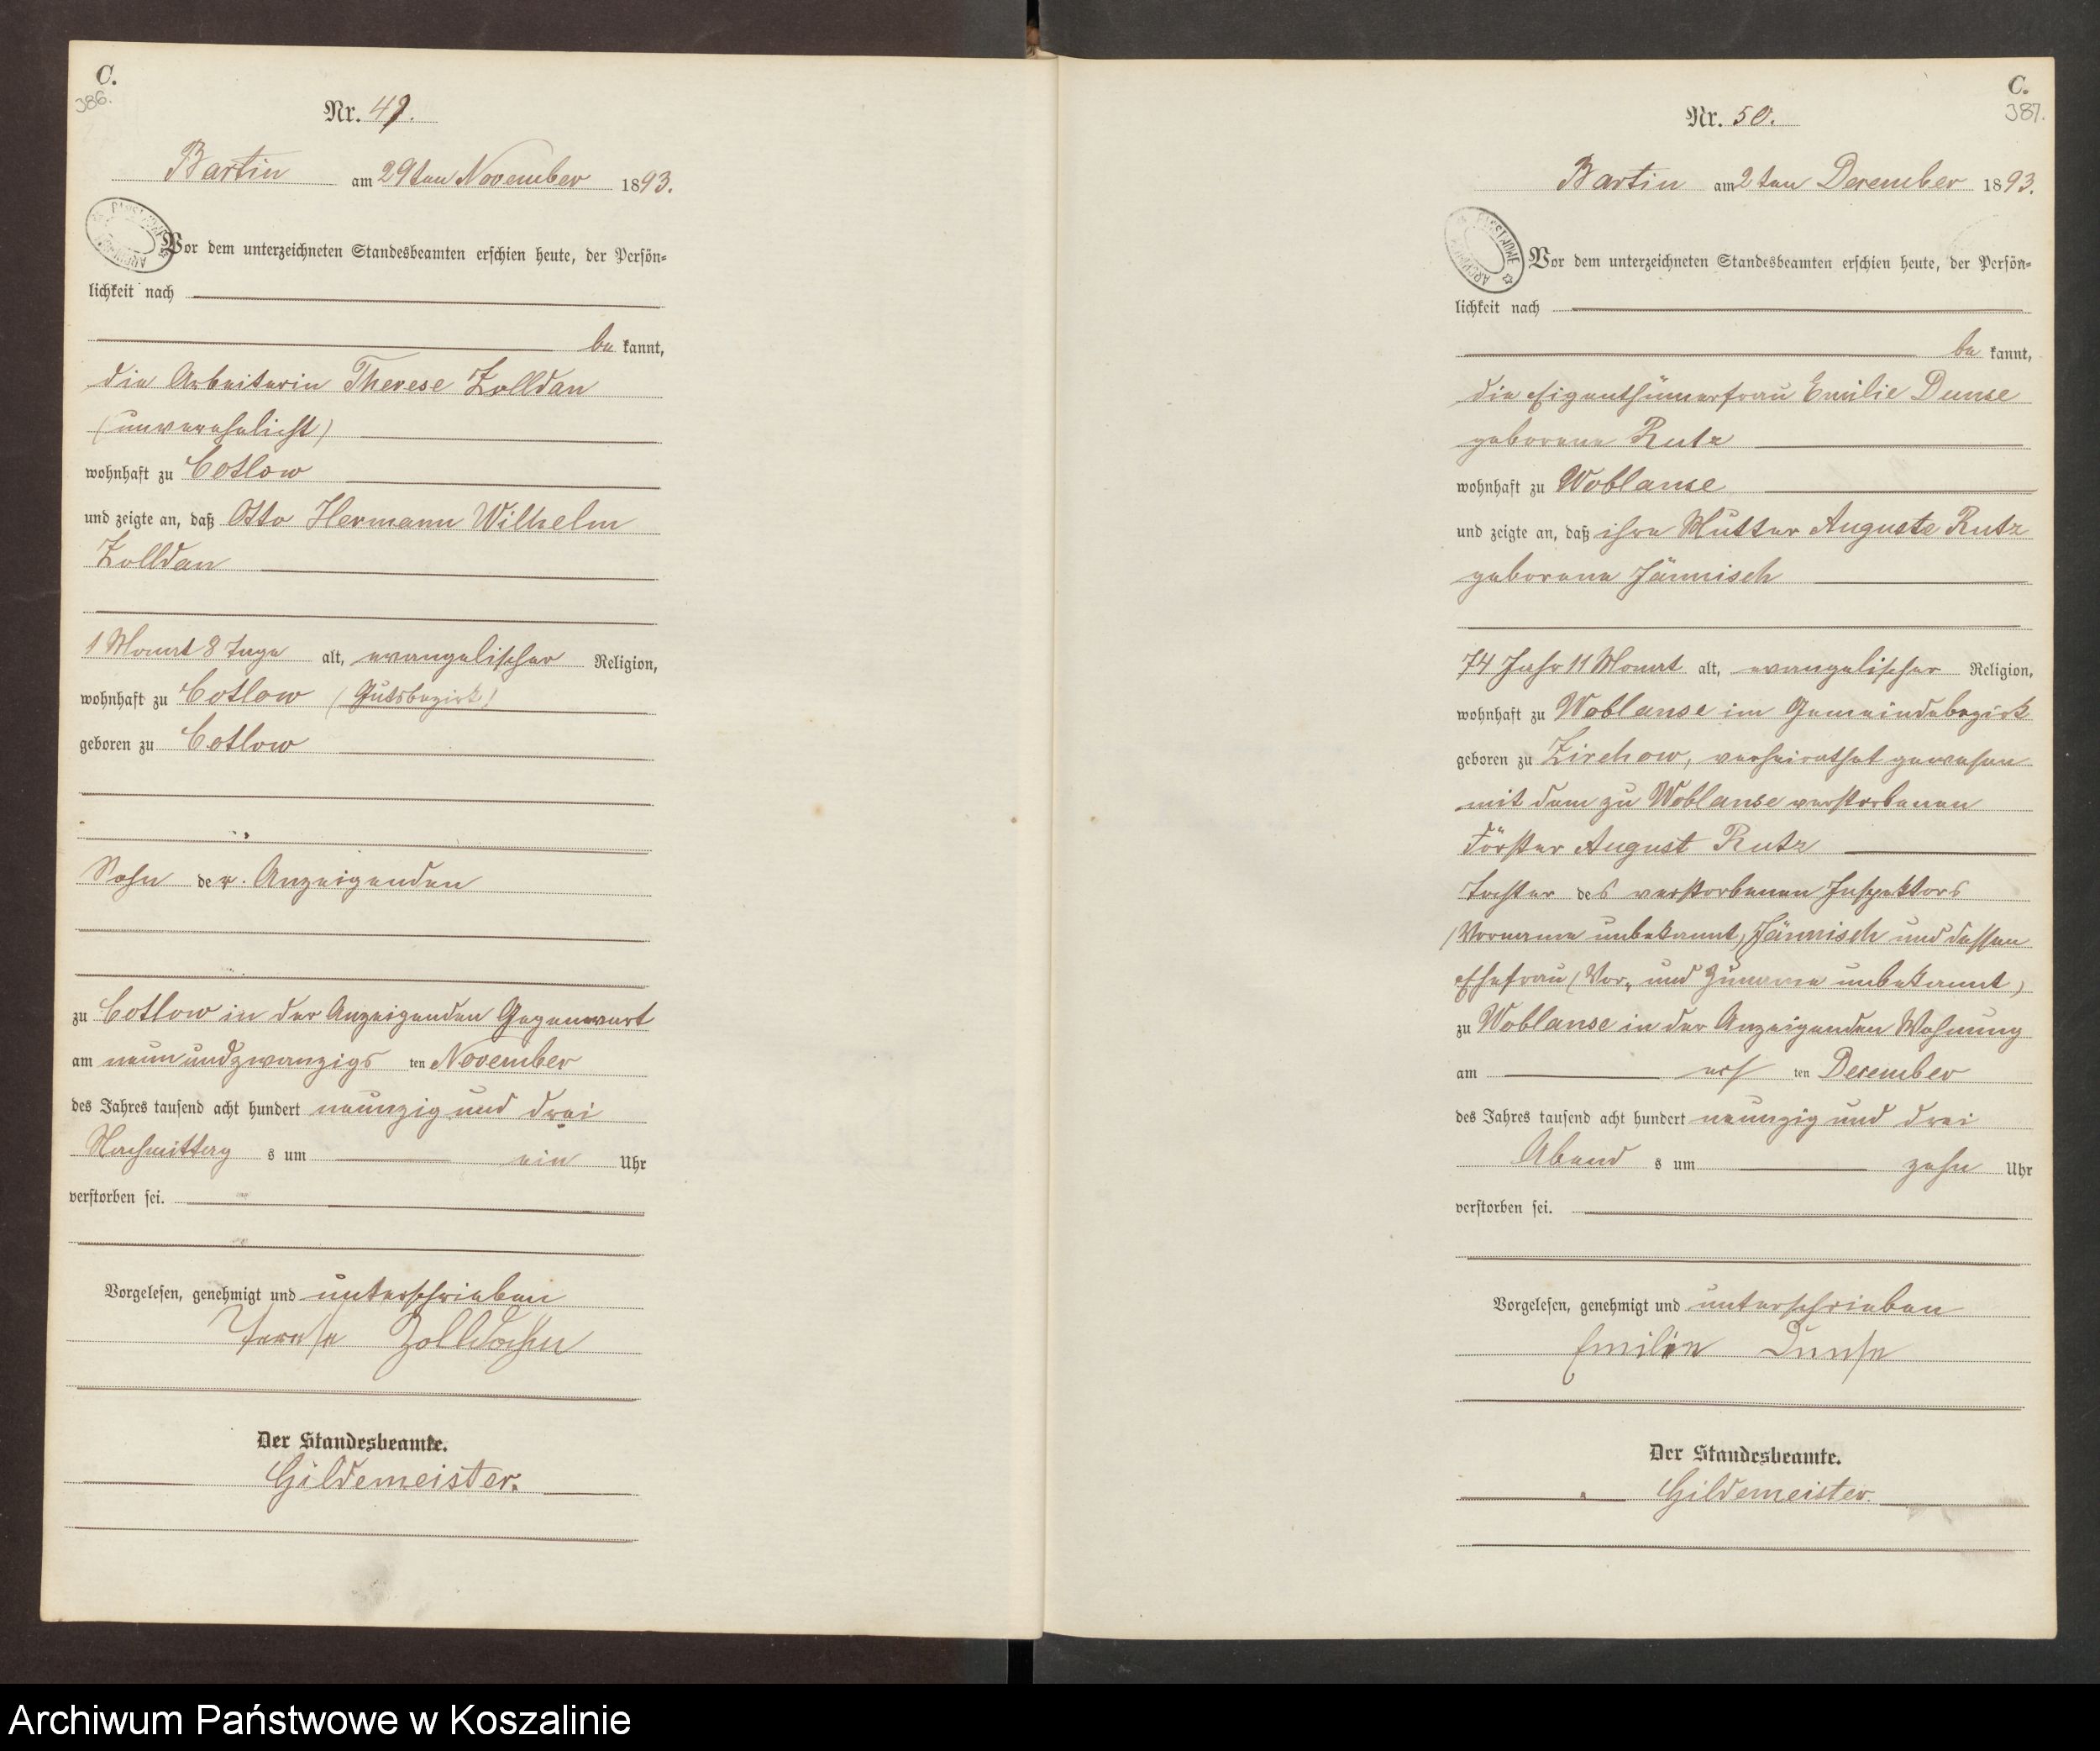 C.
386.
Nr. 49.
Bartin am 29ten November 1893.
Vor dem unterzeichneten Standesbeamten erschien heute, der Persön=
lichkeit nach
be kannt,
die Arbeiterin Therese Zolldan
(unverehelicht)
wohnhaft zu Cotlow
und zeigte an, daß Otto Hermann Wilhelm
Zolldan
1 Monat 8 Tage alt, evangelischer Religion,
wohnhaft zu Cotlow (Gutsbezirk)
geboren zu Cotlow
Sohn der Anzeigenden
zu Cotlow in der Anzeigenden Gegenwart
am neunundzwanzigs ten November
des Jahres tausend acht hundert neunzig und drei
Nachmittag s um ein Uhr
verstorben sei.
Vorgelesen, genehmigt und unterschrieben
Zolldahn
Der Standesbeamte.
Gildemeister.
C.
387.
Nr. 50.
Bartin am 2ten December 1893.
ARCHIWUM PAŃSTWOWE
Vor dem unterzeichneten Standesbeamten erschien heute, der Persön=
lichkeit nach
be kannt,
die Eigenthümerfrau Emilie Dunse
geborene Rutz
wohnhaft zu Woblanse
und zeigte an, daß ihre Mutter Auguste Rutz
geborene Jännisch
74 Jahr 11 Monat alt, evangelischer Religion,
wohnhaft zu Woblanse im Gemeindebezirk
geboren zu Zirchow, verheirathet gewesen
mit dem zu Woblanse verstorbenen
Förster August Rutz
Tochter des verstorbenen Inspektors
(Vorname unbekannt) Jännisch und dessen
Ehefrau (Vor- und Zuname unbekannt)
zu Woblanse in der Anzeigenden Wohnung
am ers ten December
des Jahres tausend acht hundert neunzig und drei
Abend s um zehn Uhr
verstorben sei.
Vorgelesen, genehmigt und unterschrieben
Emilie Dunse
Der Standesbeamte.
Gildemeister.
Archiwum Państwowe w Koszalinie